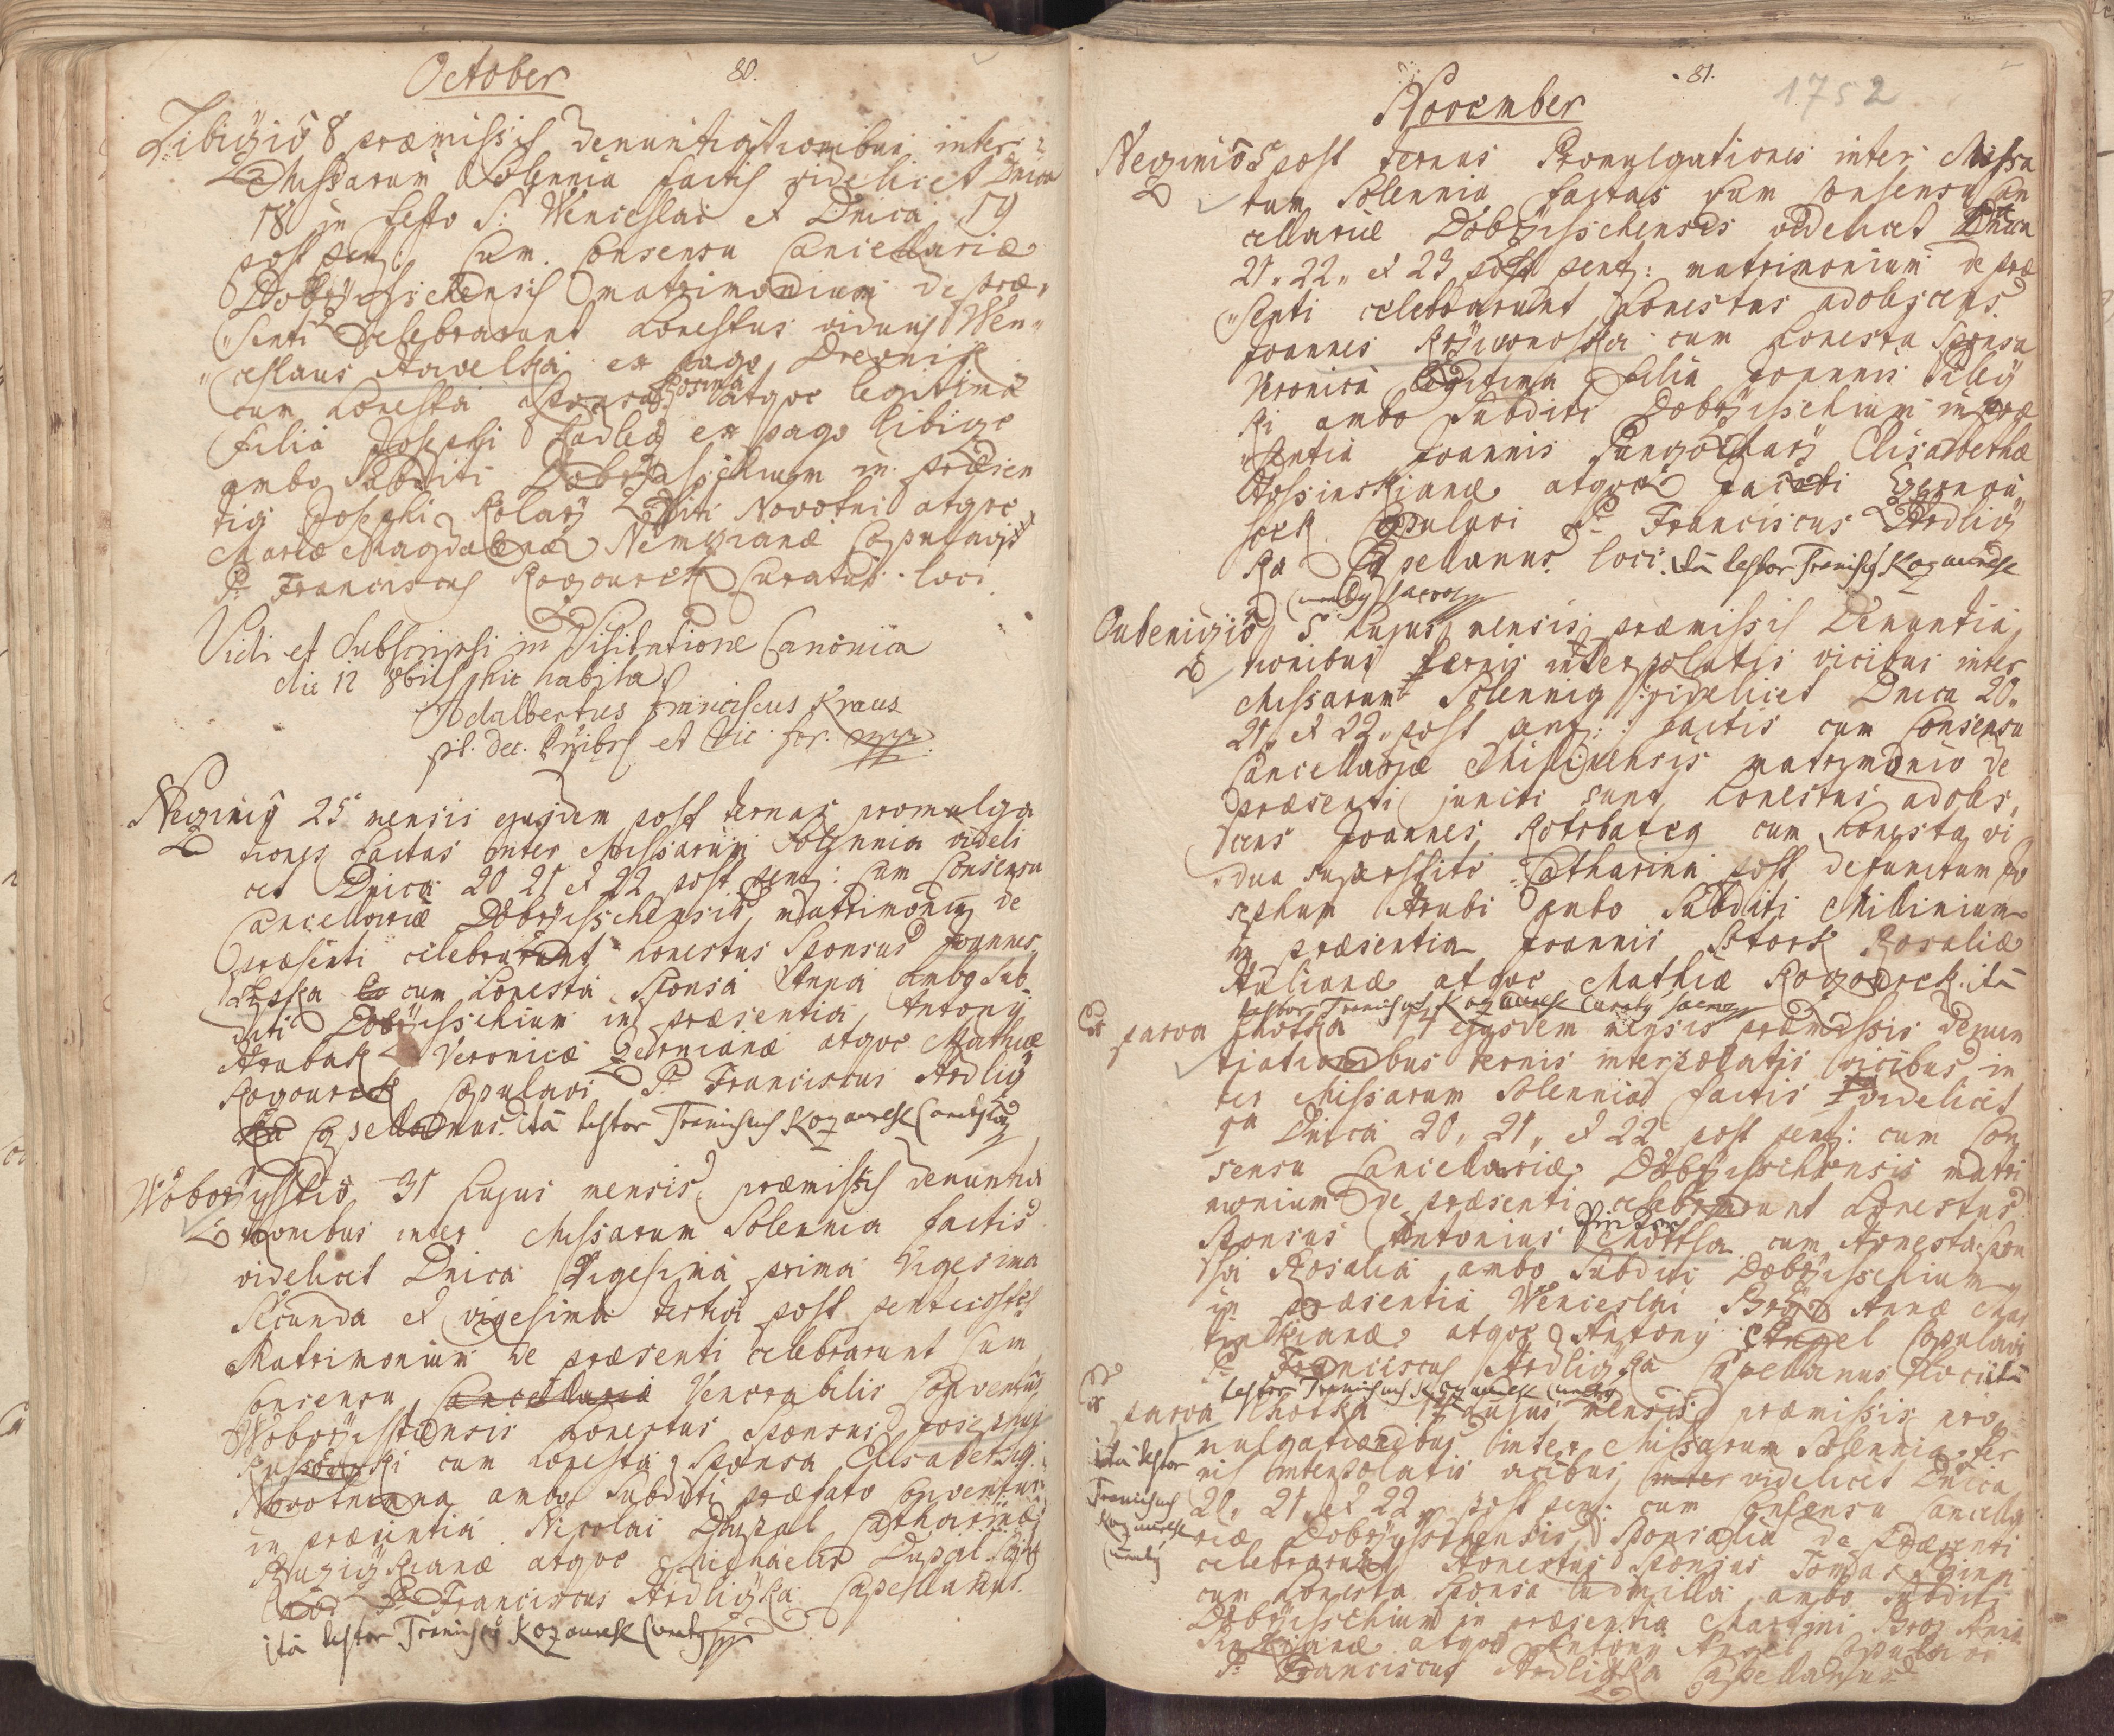 October
80.
Libiziō 8 præmissis denuntiationibus inter
Missarum Solennia factis videlicet Dnica
18 in festo S: Wenceslai et Dnica 19
post pent: cum Consensu Cancellariæ
Dobrzisschensis matrimonium de præ„
„senti celebrarunt honestus viduus Wen„
„ceslaus Havelka ex pago Drevnik
cum honesta Sponsa Rosina atque legitima
filia Josephi Hadleg ex pago Libige
ambo Subditi Dobrzisschium in præsen
tia Josephi Kolarz Viti Novotni atque
Mariæ Magdalenæ Nemczianæ Copulavit
P. Franciscus Kozourek Curatus loci
Vidi et Subscripsi in Visitatione Canonica
die 12 8bris hic habita
Adalbertus Franciscus Kraus
pl. Dec. et Vic. for. mpp
Neczinij 25 mensis ejusdem post ternas promulga
tiones factas inter Missarum Solennia videli
cet Dnica 20 21 et 22 post pent: cum Consensu
Cancellariæ Dobrzisschensis matrimonium de
præsenti celebrarunt honestus Sponsus Joannes
cum honesta Sponsa Anna ambo Sub„
diti Dobrzisschium in præsentia Antonij
Hrabak Veronicæ Zernianæ atque Mathiæ
Kozourek Copulavi P. Franciscus Hrdlicz
ka Capellanus. ità testor Franciscus Kozaurek Curatus
Woborzisstiō 31 hujus mensis præmissis denuntia
tionibus inter Missarum Solennia factis
videlicet Dnica Vigesima prima Vigesima
Secunda et vigesima tertia post pentecostes
Matrimonium de præsenti celebrarunt cum
Consensu Cancellariæ Venerabilis Conventus
Woborzistensis honestus Sponsus Josephus
cum honesta Sponsa Elisabetha
Novotnianna ambo Subditi præfato Conventui
in præsentia Nicolai Duspal Catharinæ
Ruziczkianæ atque Michaelis Duspal
P. Franciscus Hrdliczka Capellanus.
ità testor Franciscus Kozaurek Curatus mpp
81.
1752
November
Neczinio 5 post ternas Promulgationes inter Missa
rum Solennia factas cum Consensu Can
cellariæ Dobrzisschensis videlicet Dnica
21„ 22„ et 23 post pent: matrimonium de præ
„senti celebrarunt honestus adolescens
Joannes Krziwonoska cum honesta Sponsa
Veronica legitima filia Joannis Bily
ki ambo Subditi Dobrzisschium in præ
„sentia Joannis Elisabethæ
atque Jacobi
Copulavi P. Franciscus Hrdlicz
ka Capellanus loci. ità testor Franciscus Kozaurek
Curatus loci mpp
Oubeniczio 5 hujus mensis præmissis Denuntia
tionibus ternis interpolatis vicibus inter
Missarum Solennia videlicet Dnica 20„
21„ et 22„ post pent: factis cum Consensu
Cancellariæ Millinensis matrimonio de
præsenti juncti sunt honestus adoles„
cens Joannes Kotrbateg cum honesta vi
„dua superstite Catharina post defunctum Jo
sephum Hrubi ambo Subditi Millinium
in præsentia Joannis Stork Rosaliæ
Hulianæ atque Mathiæ Kozourek. ità
testor Franciscus Kozaurek Curatus loci mpp
parva Lhotka 14 ejusdem mensis præmissis denun
tiationibus ternis interpolatis vicibus in
ter Missarum Solennia factis videlicet
Dnica 20„ 21„ et 22 post pent: cum Con
sensu Cancellariæ Dobrzisschensis matri
monium de præsenti celebrarunt honestus
Sponsus Antonius cum honesta Spon
sa Rosalia ambo Subditi Dobrzisschium
in præsentia Wenceslai Broz Annæ Mar
tinkianæ atque Antonij Angel Copulavi
P. Franciscus Hrdliczka Capellanus Loci ità
testor Franciscus Kozaurek Curatus
parva Lhotka 14 hujus mensis præmissis pro
mulgationibus inter Missarum Solennia ter
nis interpolatis vicibus inter videlicet Dnica
20„ 21„ et 22„ post pent: cum Consensu Cancella
riæ Dobrzisstensis Sponsalia de Præsenti
celebrarunt honestus Sponsus Tomas
cum honesta Sponsa Ludmilla ambo Subditi
Dobrzisschium in præsentia Martini Broz Annæ
atque Antonij Angel Copulavi
P. Franciscus Hrdliczka Capellanus
ità testor
Franciscus
Kozaurek
Curatus